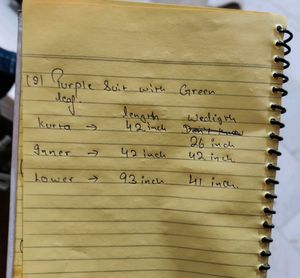 (9) Purple Suit with Green
leg.
length wedigth
Kurta → 42 inch Don't know
26 inch
Inner → 42 inch 42 inch
Lower → 93 inch 41 inch